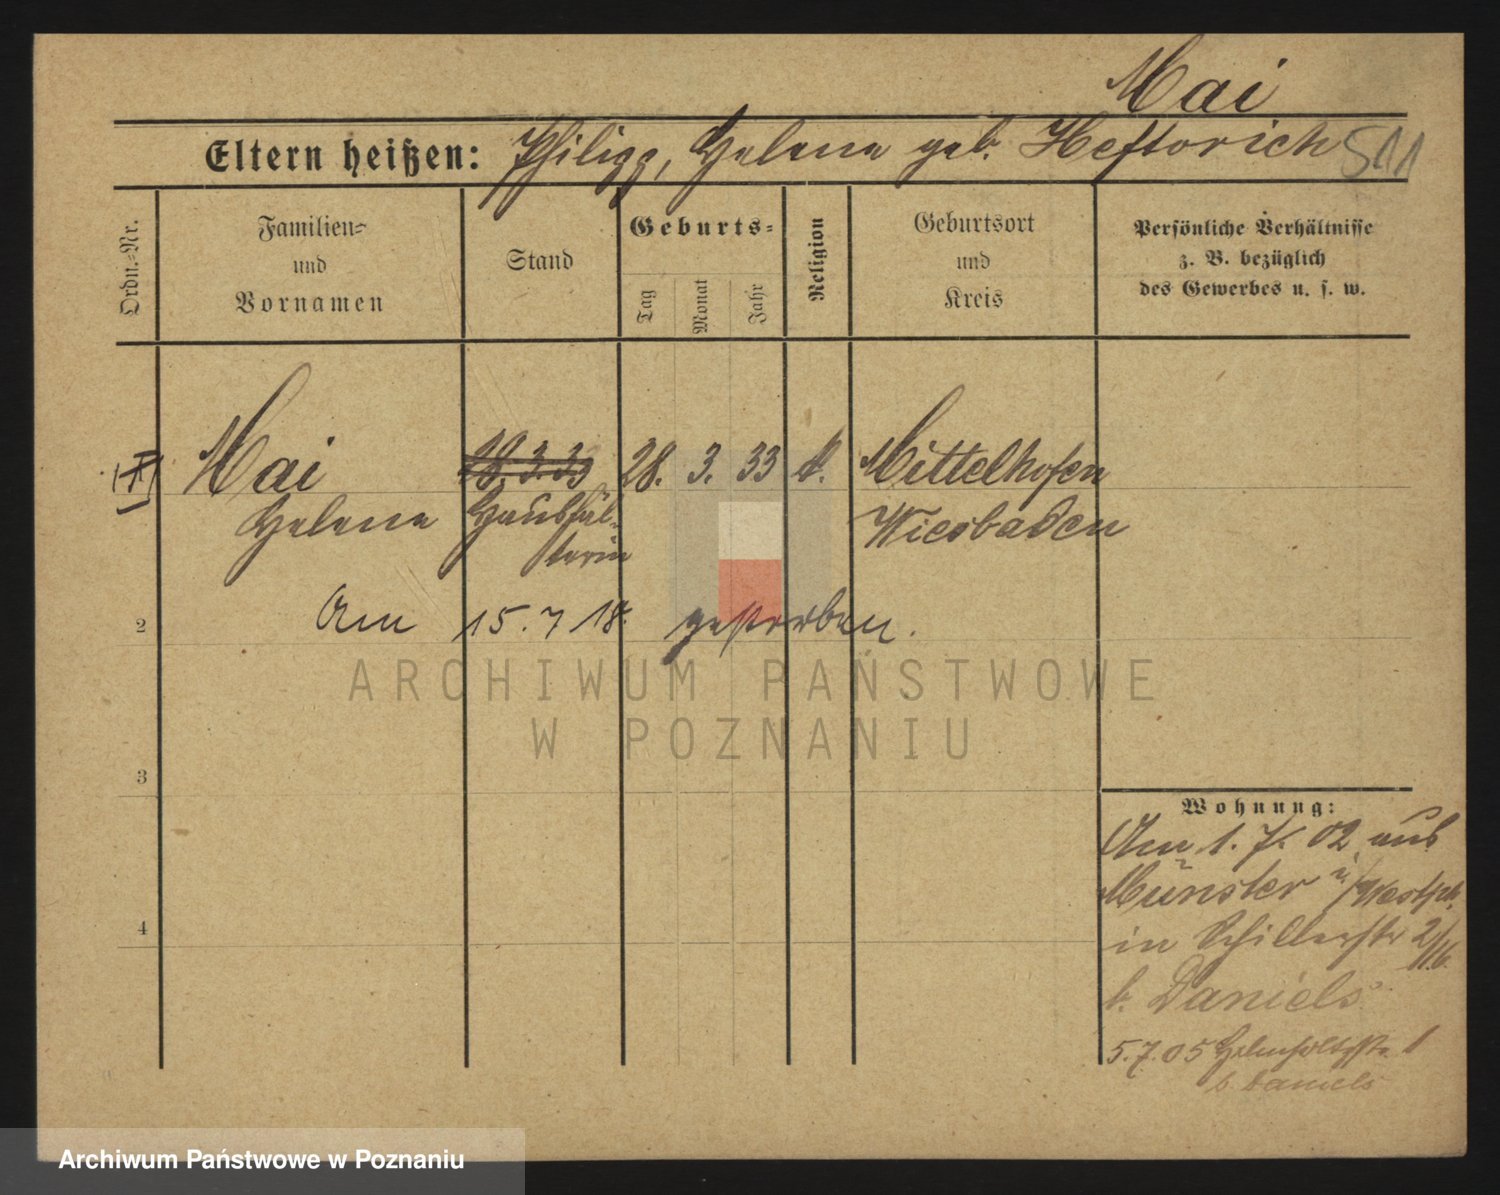 Mai
Eltern heißen: Philipp, Helene geb. Heftorich 511
Ordn.-Nr.
Familien-
und
Vornamen
Stand
Geburts-
Tag
Monat
Jahr
Religion
Geburtsort
und
Kreis
Persönliche Verhältnisse
z. B. bezüglich
des Gewerbes u. s. w.
Mai 28. 3. 33 28. 3. 33 k. Mittelhofen
Helene Haushäl- Wiesbaden
terin
2 Am 15. 7 18. gestorben.
ARCHIWUM PAŃSTWOWE
W POZNANIU
3
4
Wohnung:
Am 1. 7. 02 aus
Münster i/Westph.
in Schillerstr
b. Daniels
5.7.05 Helmholtzstr. 1
b. Daniels
Archiwum Państwowe w Poznaniu